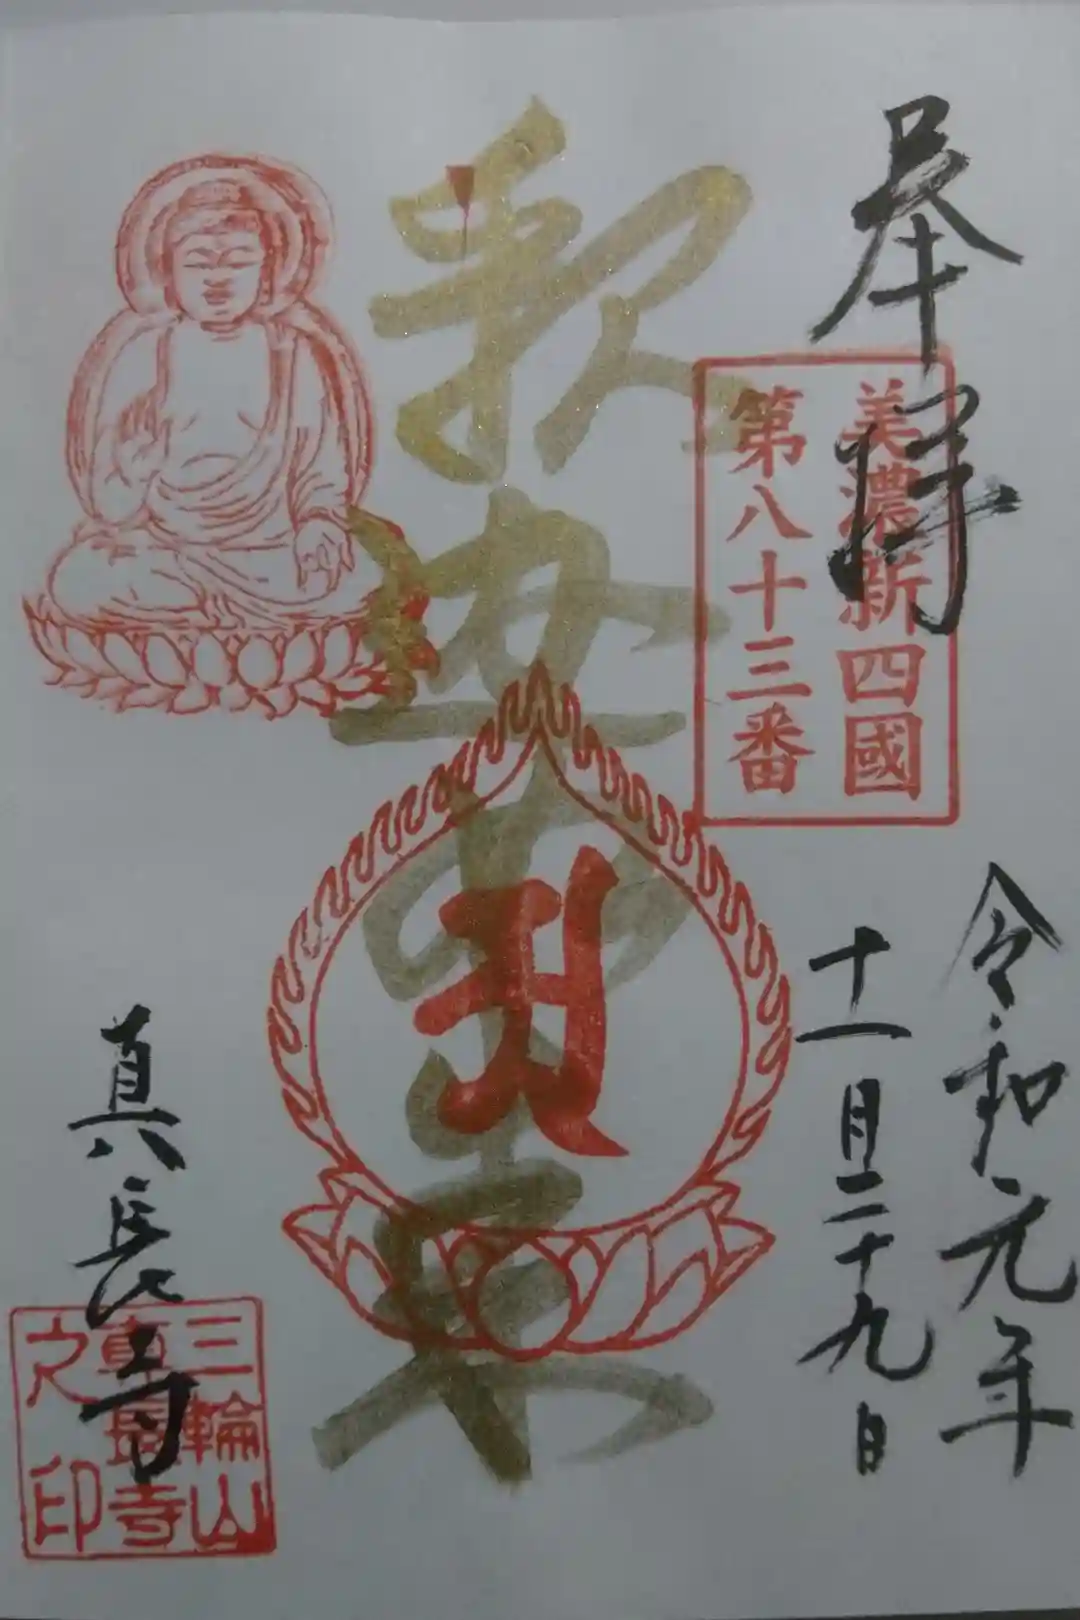 奉拝
美濃新四國
第八十三番
令和元年
十一月二十九日
釈迦如来
真長寺
三輪山
真長寺
之印